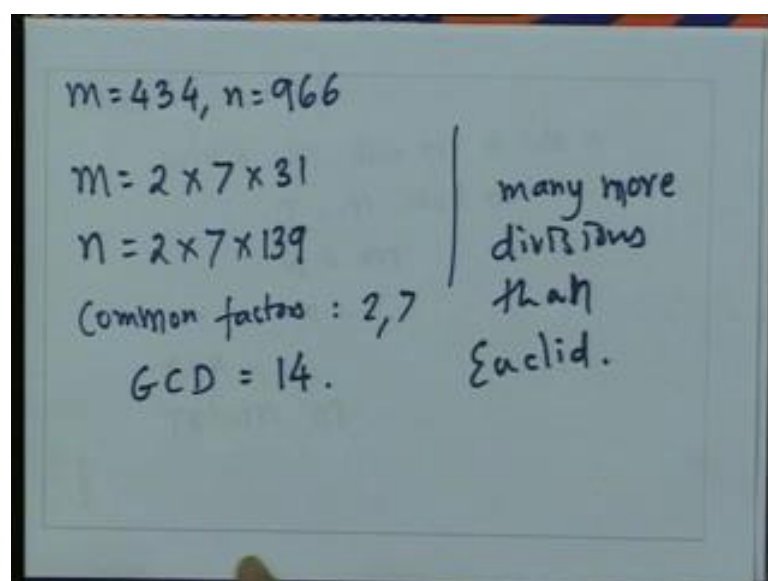 m=434, n=966
m= 2 x 7 x 31
n = 2x7x139
Common factors : 2,7
GCD = 14.
many more
divisions
than
Euclid.